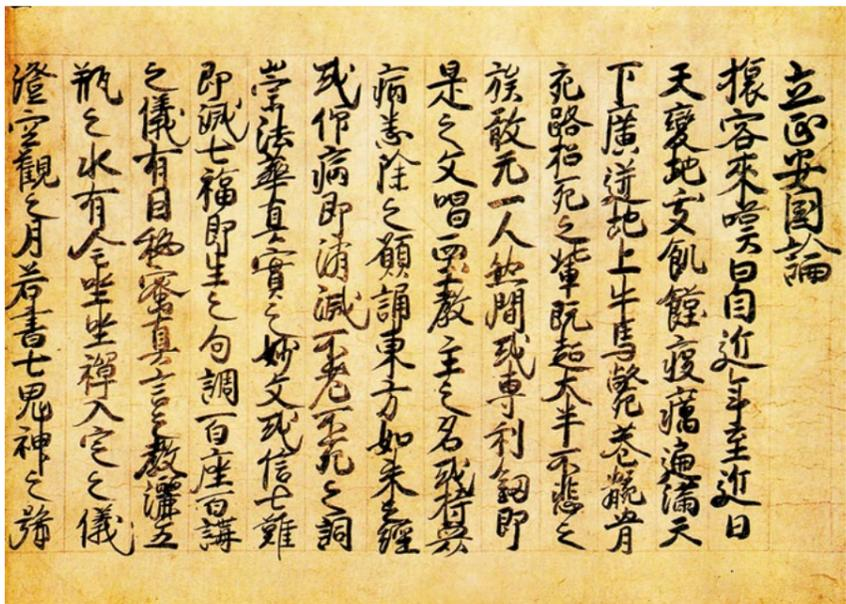 立正安国論
旅客来嘆曰自近年至近日
天変地夭飢饉疫癘遍満天
下広迸地上牛馬斃巷骸骨
充路招死之輩既超大半不悲之
族敢无一人然間或専利剣即
是之文唱西土教主之名或持衆
病悉除之願誦東方如来之経
或仰病即消滅不老不死之詞
崇法華真実之妙文或信七難
即滅七福即生之句調百座百講
之儀有因秘密真言之教灑五
瓶之水有全坐禅入定之儀
澄空観之月若書七鬼神之号